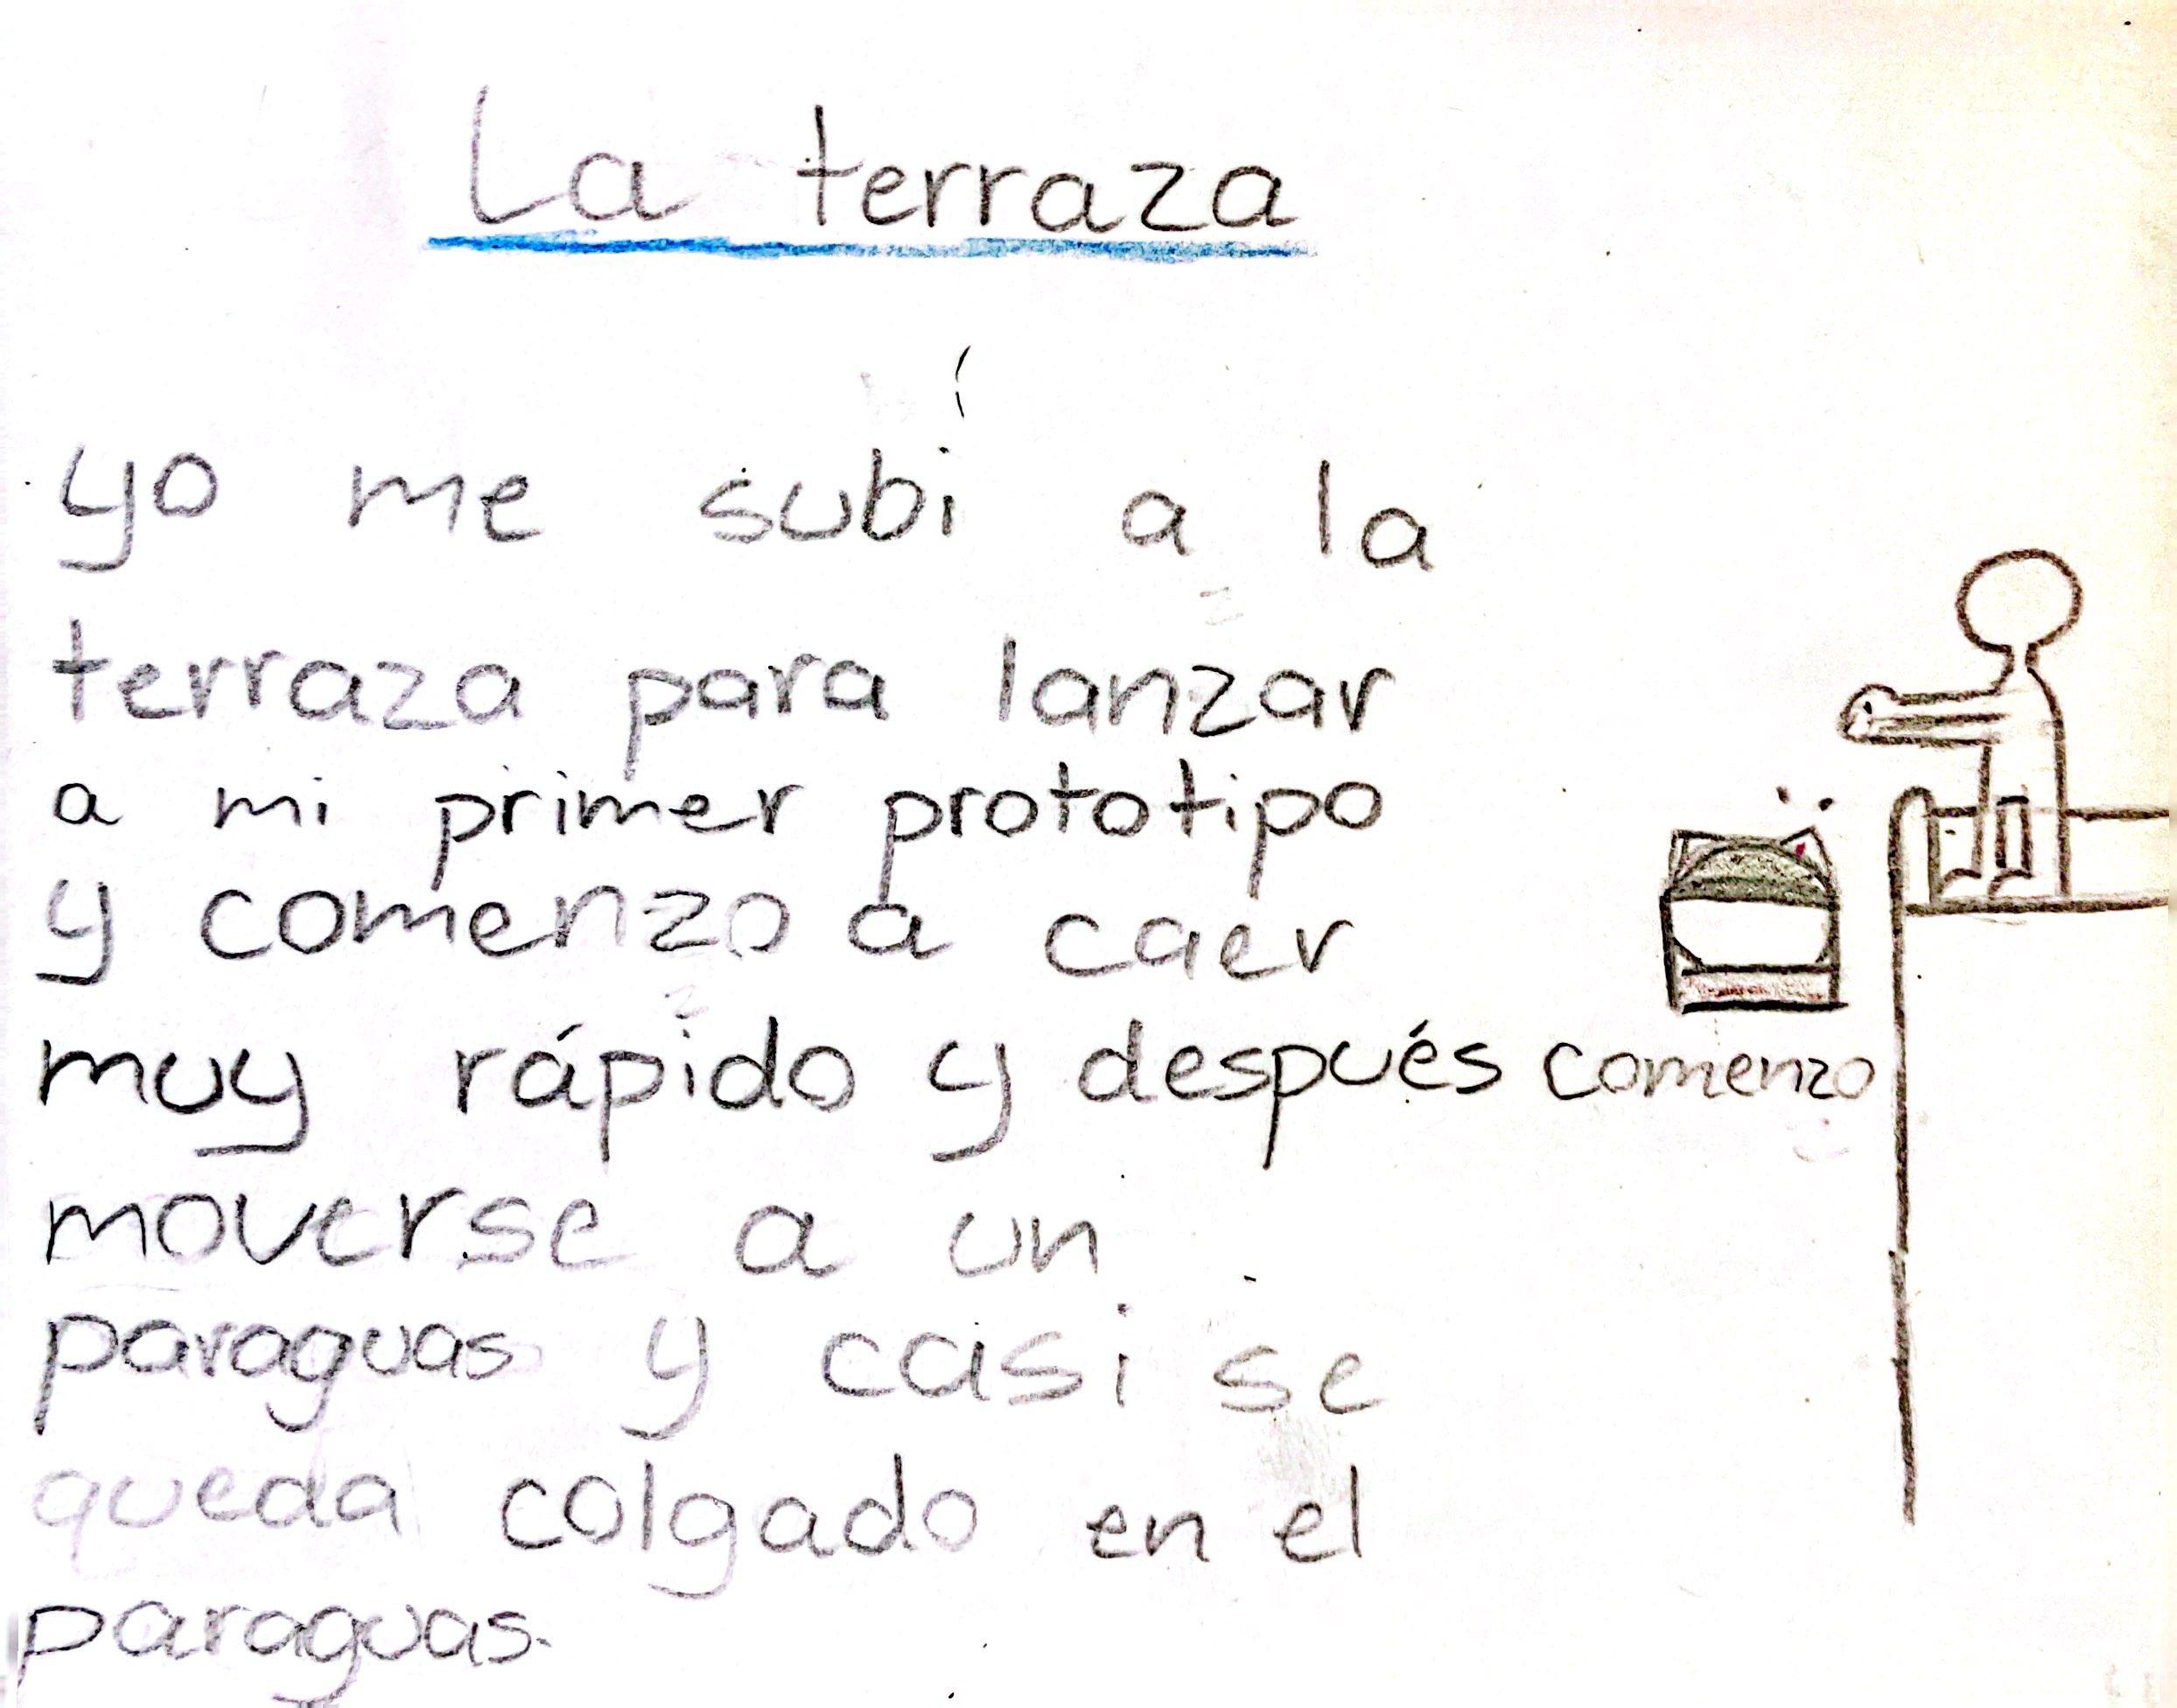 La terraza
yo me subí a la
terraza para lanzar
a mi primer prototipo
y comenzo a caer
muy rápido y después comenzo
moverse a un
paraguas y casi se
queda colgado en el
paraguas.